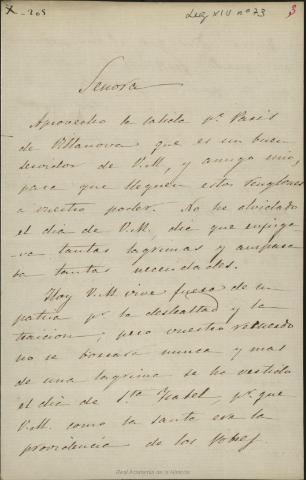 X-205
Leg XIV nº 73
3
Señora
Aprovecho la salida pª. Paris
de Villanova que es un buen
servidor de V.M, y amigo mio,
para que lleguen estos renglones
a vuestro poder. No he olvidado
el dia de V.M, dia que enjuga-
-va tantas lagrimas y ampara
ba tantas necesidades.
Hoy V.M. vive fuera de su
patria pr. la deslealtad y la
traicion; pero vuestro recuerdo
no se borrara nunca y mas
de una lagrima se ha vertido
el dia de Sta Ysabel, pr. que
V.M. como la santa era la
providencia de los pobres
Real Academia de la Historia